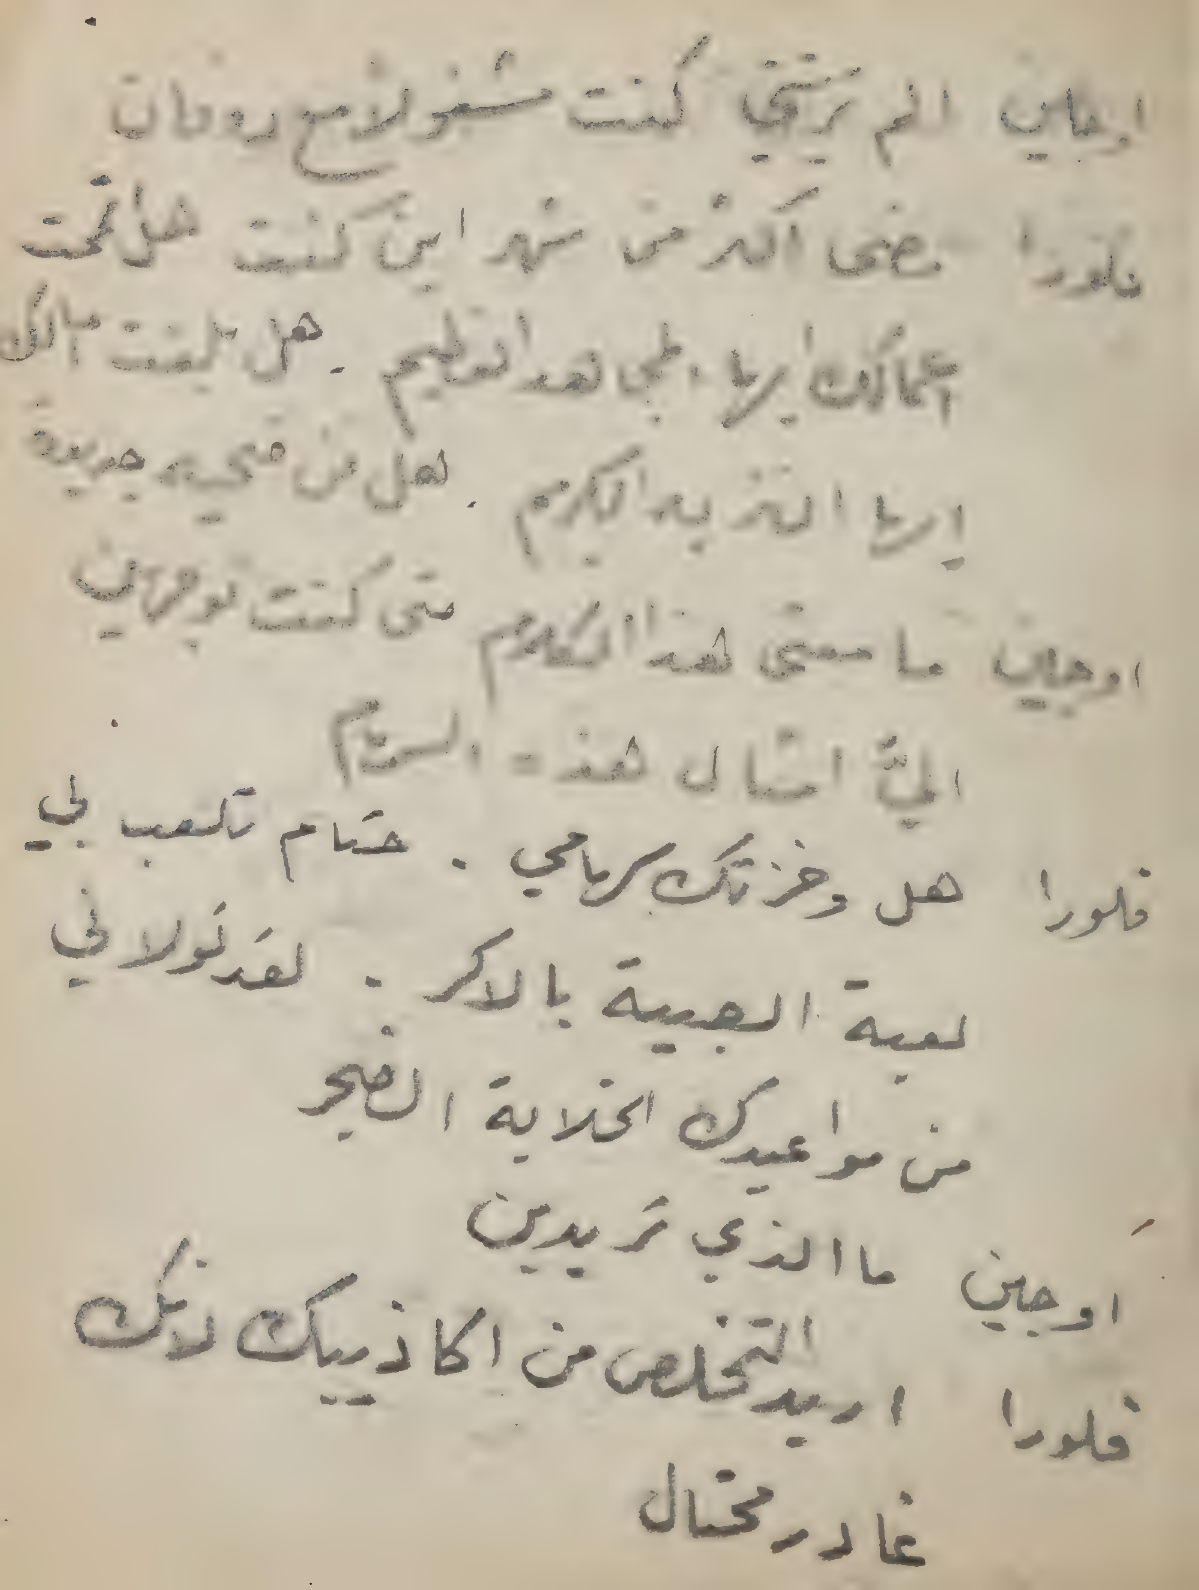 اوجين الم ترتني كنت مشغولا مع رومان
فلورا مضى اكثر من شهر اين كنت هل قمت
اعمالك ايها المجاهد العظيم . هل بلغت مالك
ايها النزيه الكريم . هل من ضحية جديدة
اوجين ما معنى هذا الكلام متى كنت توجهين
اليَّ امثال هذه السهام
فلورا هل وخزتك سهامي . حتام تلعب بي
لعبة الصبية بالاكر . لقد تولاني
من مواعيدك الخلابة الضجر
اوجين ما الذي تريدين
فلورا اريد التخلص من اكاذيبك لانك
غادر محتال